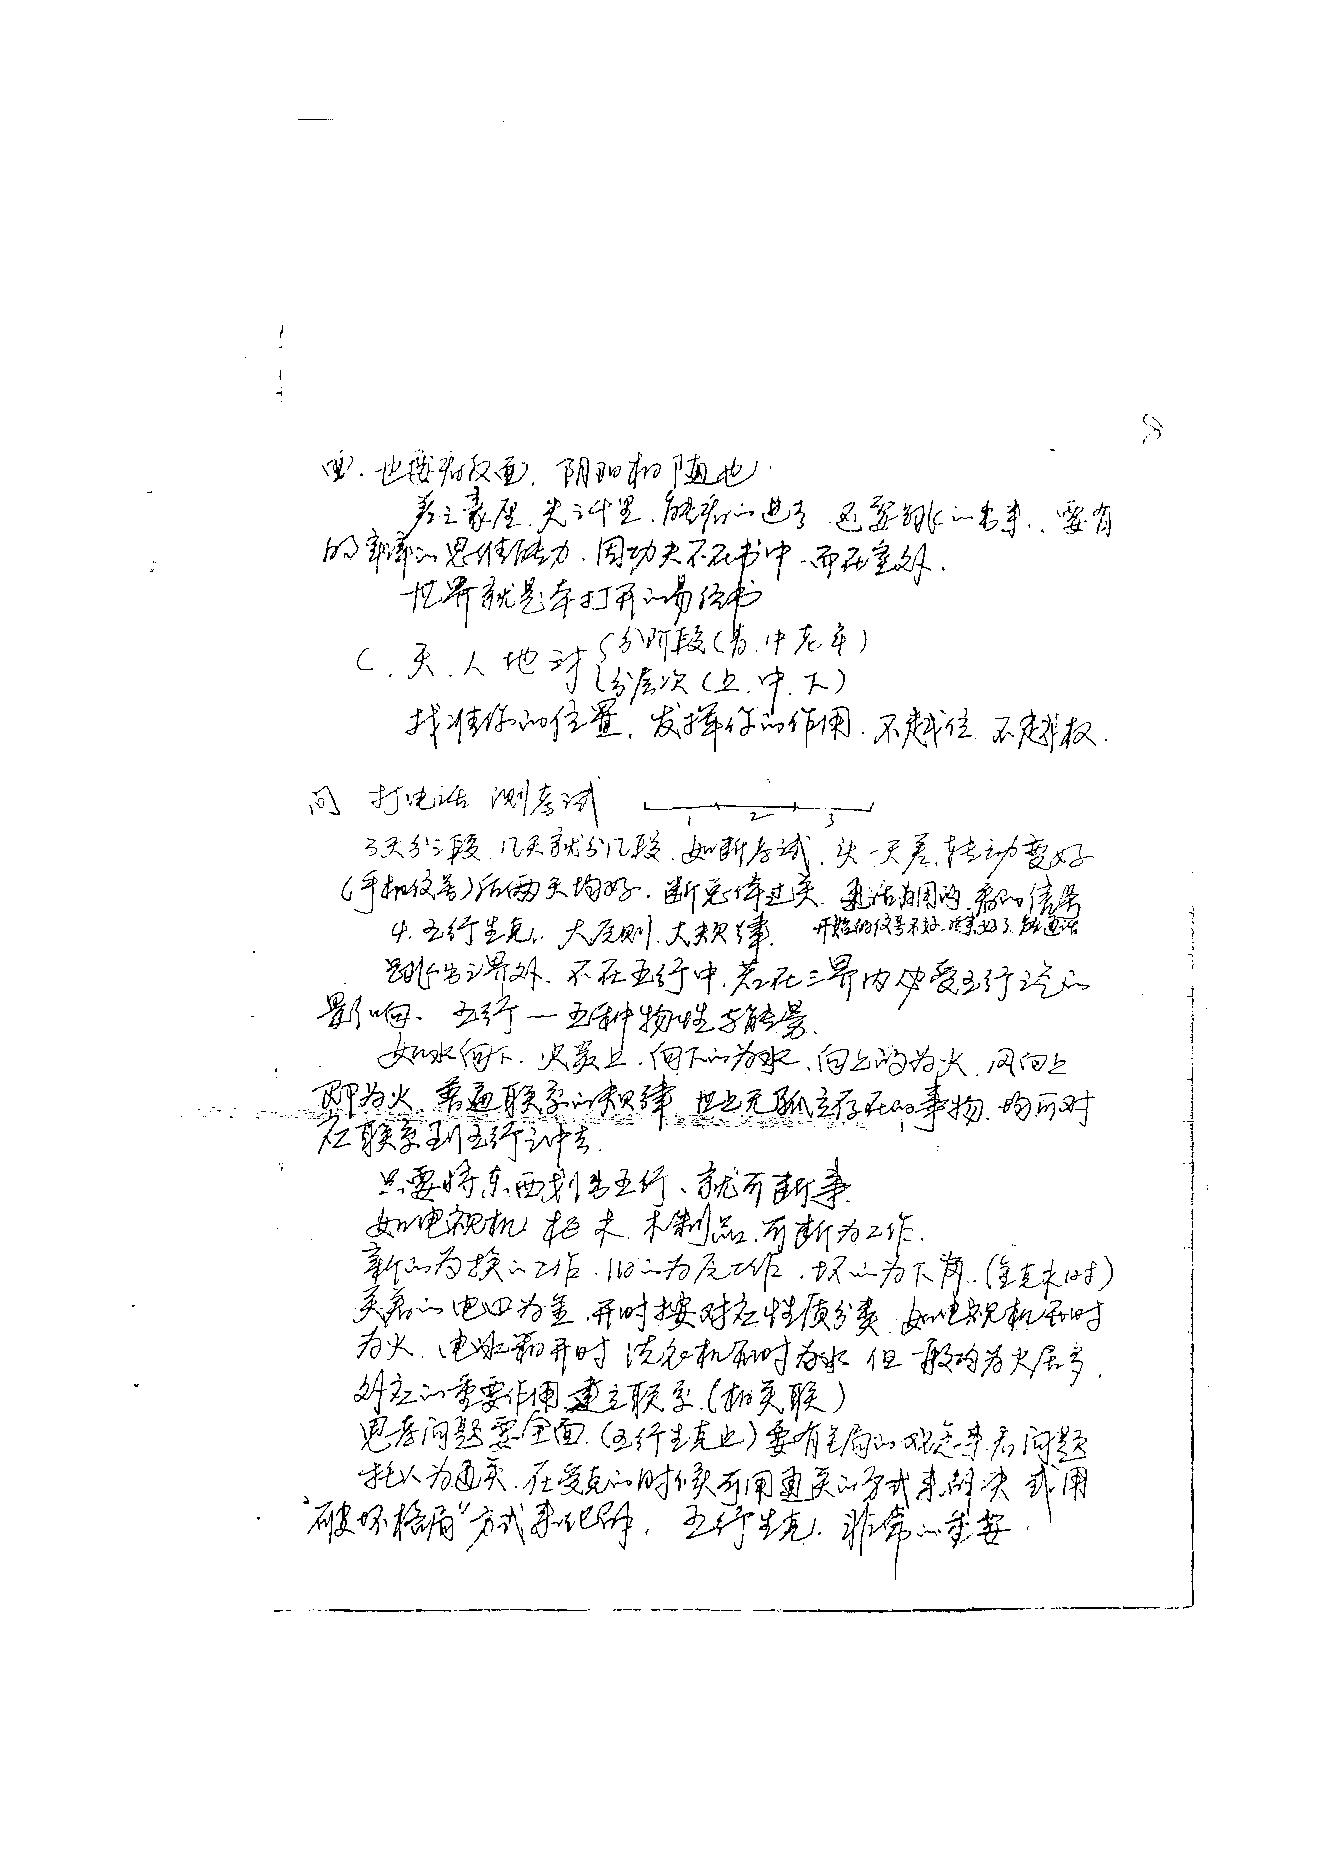 8
面. 也要看反面, 阴阳相随也.
差之豪厘, 失之千里, 能看的进去 还要跳的出来, 要有
的新的思维能力, 因功夫不在书中, 而在室外.
世界就是本打开的易经书
C. 天. 人 地 时 {分阶段(青.中老年)
{分层次(上.中.下)
找准你的位置, 发挥你的作用. 不越位 不越权.
问 打电话 测考试
1 2 3
3天分三段, 几天就分几段, 如断考试, 头一天差, 转动变好
(手机仪器)后俩天均好. 断总体过关, 电话用的, 看的信号
开始的信号不好, 后来好了, 能通话
4. 五行生克, 大原则. 大规律.
跳出三界外, 不在五行中, 若在三界内必受五行之气的
影响. 五行一五种物性与能量.
如水向下. 火炎上, 向下的为水, 向上的为火, 风向上
即为火, 普遍联系的规律, 世上无孤立存在的事物, 均可对
应联系到五行之中去.
只要将东西划出五行, 就可断事.
如电视机 柜 木 木制品, 可断为工作.
新的为换的工作, 旧的为原工作, 坏的为下岗. (金克木时)
关着的电四为金, 开时按对应性质分类, 如电视机开时
为火, 电冰箱开时 洗衣机开时为水 但一般均为火居多.
对应的重要作用 建立联系. (相关联)
思考问题要全面. (五行生克上) 要有全局的观念来看问题
托人为通关. 在受克的时候可用通关的方式来解决 或用
“破坏格局”方式来化解. 五行生克. 非常的重要.